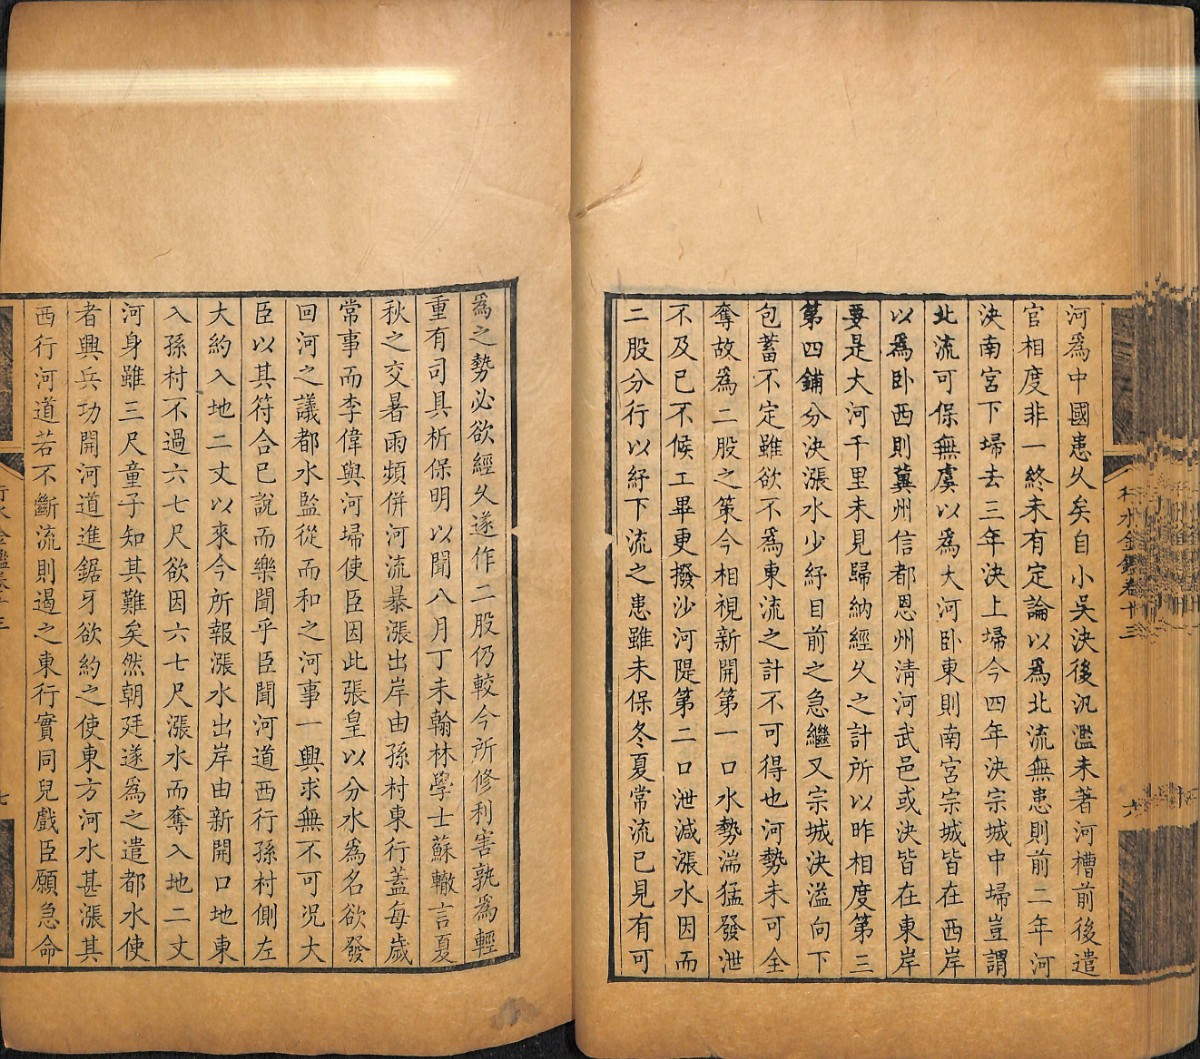 行水金鑑卷十三
六
河爲中國患久矣自小吳決後汎濫未著河槽前後遣
官相度非一終未有定論以爲北流無患則前二年河
決南宮下埽去三年決上埽今四年決宗城中埽豈謂
北流可保無虞以爲大河卧東則南宮宗城皆在西岸
以爲卧西則冀州信都恩州淸河武邑或決皆在東岸
要是大河千里未見歸納經久之計所以昨相度第三
第四鋪分決漲水少紓目前之急繼又宗城決溢向下
包蓄不定雖欲不爲東流之計不可得也河勢未可全
奪故爲二股之策今相視新開第一口水勢湍猛發泄
不及已不候工畢更撥沙河隄第二口泄減漲水因而
二股分行以紓下流之患雖未保冬夏常流已見有可
爲之勢必欲經久遂作二股仍較今所修利害孰爲輕
重有司具析保明以聞八月丁未翰林學士蘇轍言夏
秋之交暑雨頻併河流暴漲出岸由孫村東行蓋每歲
常事而李偉與河埽使臣因此張皇以分水爲名欲發
回河之議都水監從而和之河事一興求無不可况大
臣以其符合已說而樂聞乎臣聞河道西行孫村側左
大約入地二丈以來今所報漲水出岸由新開口地東
入孫村不過六七尺欲因六七尺漲水而奪入地二丈
河身雖三尺童子知其難矣然朝廷遂爲之遣都水使
者興兵功開河道進鋸牙欲約之使東方河水甚漲其
西行河道若不斷流則遏之東行實同兒戲臣願急命
七